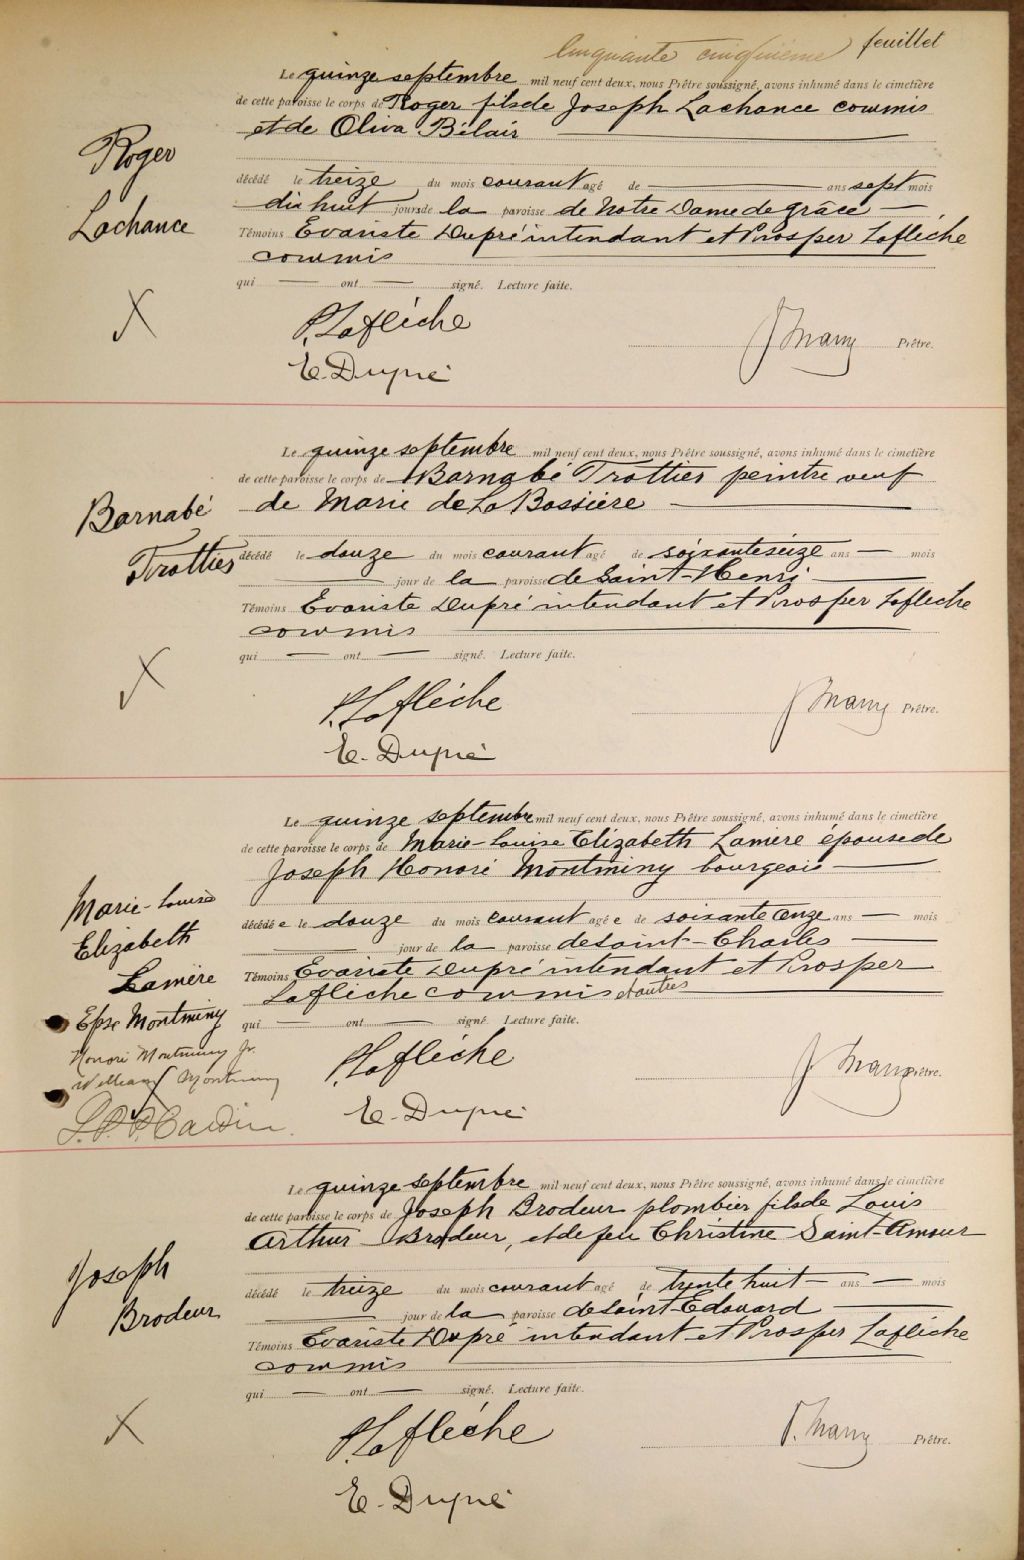 Cinquante cinquième feuillet
Le quinze septembre mil neuf cent deux, nous Prêtre soussigné, avons inhumé dans le cimetière
de cette paroisse le corps de Roger fils de Joseph Lachance commis
et de Oliva Bélair
Roger
Lachance
décédé le treize du mois courant agé de ans sept mois
dix huit jours de la paroisse de Notre Dame de Grâce
Témoins Evariste Dupré intendant et Prosper Laflèche
commis
qui ont signé. Lecture faite.
P. Laflèche
Prêtre.
E. Dupré
Le quinze septembre mil neuf cent deux, nous Prêtre soussigné, avons inhumé dans le cimetière
de cette paroisse le corps de Barnabé Trottier peintre veuf
de Marie de La Bossière
Barnabé
Trottier
décédé le douze du mois courant agé de soixante seize ans mois
jour de la paroisse de Saint-Henri
Témoins Evariste Dupré intendant et Prosper Laflèche
commis
qui ont signé. Lecture faite.
P. Laflèche
Prêtre.
E. Dupré
Le quinze septembre mil neuf cent deux, nous Prêtre soussigné, avons inhumé dans le cimetière
de cette paroisse le corps de Marie-Louise Elizabeth Lamère épouse de
Joseph Honoré Montminy bourgeois
Marie-Louise
Elizabeth
Lamère
Epse Montminy
Honoré Montminy Jr.
William Montminy
décédée le douze du mois courant agée de soixante onze ans mois
jour de la paroisse de Saint-Charles
Témoins Evariste Dupré intendant et Prosper
Laflèche commis et autres
qui ont signé. Lecture faite.
P. Laflèche
Prêtre.
E. Dupré
Le quinze septembre mil neuf cent deux, nous Prêtre soussigné, avons inhumé dans le cimetière
de cette paroisse le corps de Joseph Brodeur plombier fils de Louis
Arthur Brodeur, et de feu Christine Saint-Amour
Joseph
Brodeur
décédé le treize du mois courant agé de trente huit ans mois
jour de la paroisse de Saint-Edouard
Témoins Evariste Dupré intendant et Prosper Laflèche
commis
qui ont signé. Lecture faite.
P. Laflèche
Prêtre.
E. Dupré